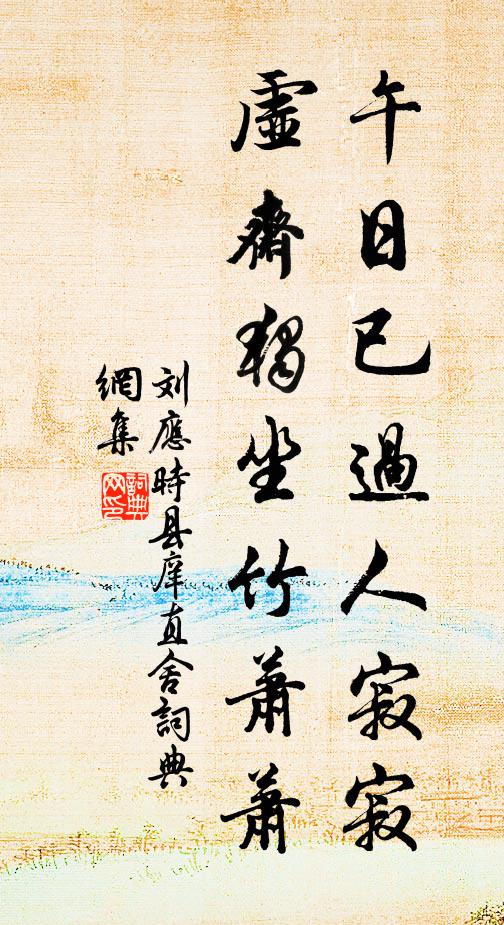 午日已過人寂寂
虛齋獨坐竹蕭蕭
刘應時县庠直舍詞典
網集
詞典
网印